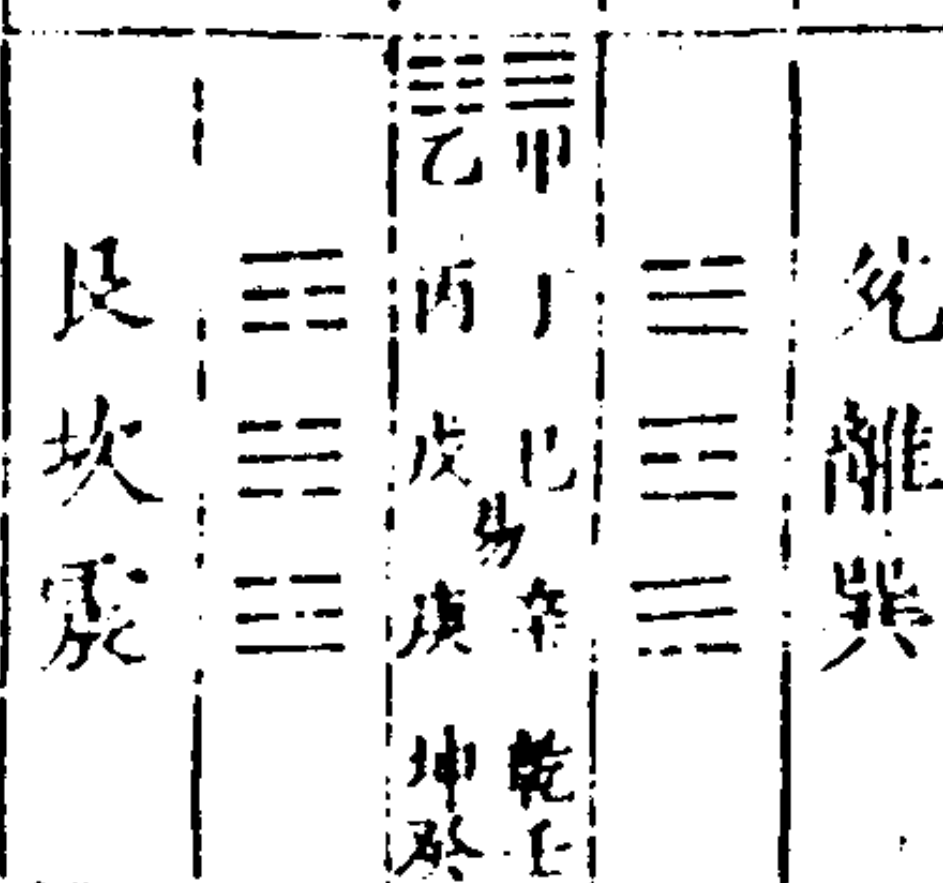 兌
離
巽
甲
丁
己
辛
乾壬
易
乙
丙
戊
庚
坤癸
艮
坎
震